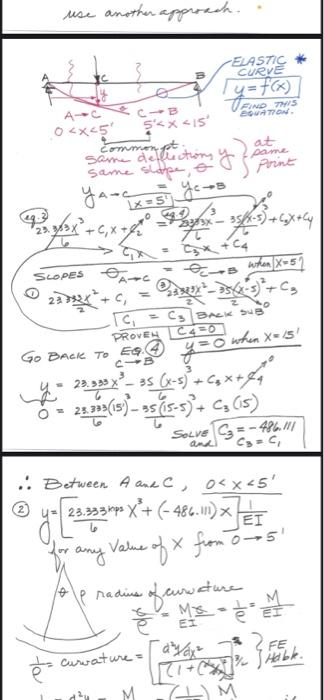 use another approach.
ELASTIC *
CURVE
y = f(x)
FIND THIS
EQUATION.
A C B
y
A→C C→B
0<x<5' 5'<x<15'
common pt.
same deflection y } at same point
same slope, θ
y A→C = y C→B
x=5'
eq.2 eq.4
23.333x³/6 + C₁x + C₂ = 23.333x³/6 - 35(x-5)³/6 + C₃x + C₄
C₁x = C₃x + C₄
SLOPES θ A→C = θ C→B when x=5'
① 23.333x²/2 + C₁ = ③ 23.333x²/2 - 35(x-5)²/2 + C₃
C₁ = C₃ BACK SUB
PROVEN C₄=0
GO BACK TO EQ. ④ y=0 when x=15'
C→B
y = 23.333x³/6 - 35(x-5)³/6 + C₃x + C₄
0 = 23.333(15)³/6 - 35(15-5)³/6 + C₃(15)
SOLVE C₃ = -486.111
and C₃ = C₁
∴ Between A and C, 0<x<5'
② y = [23.333 kips/6 x³ + (-486.111)x] 1/EI
for any value of x from 0→5'
θ ρ radius of curvature
= 1/ρ = M/EI
1/ρ = curvature = [d²y/dx²] / [1+( )²]^3/2 } FE Hdbk.